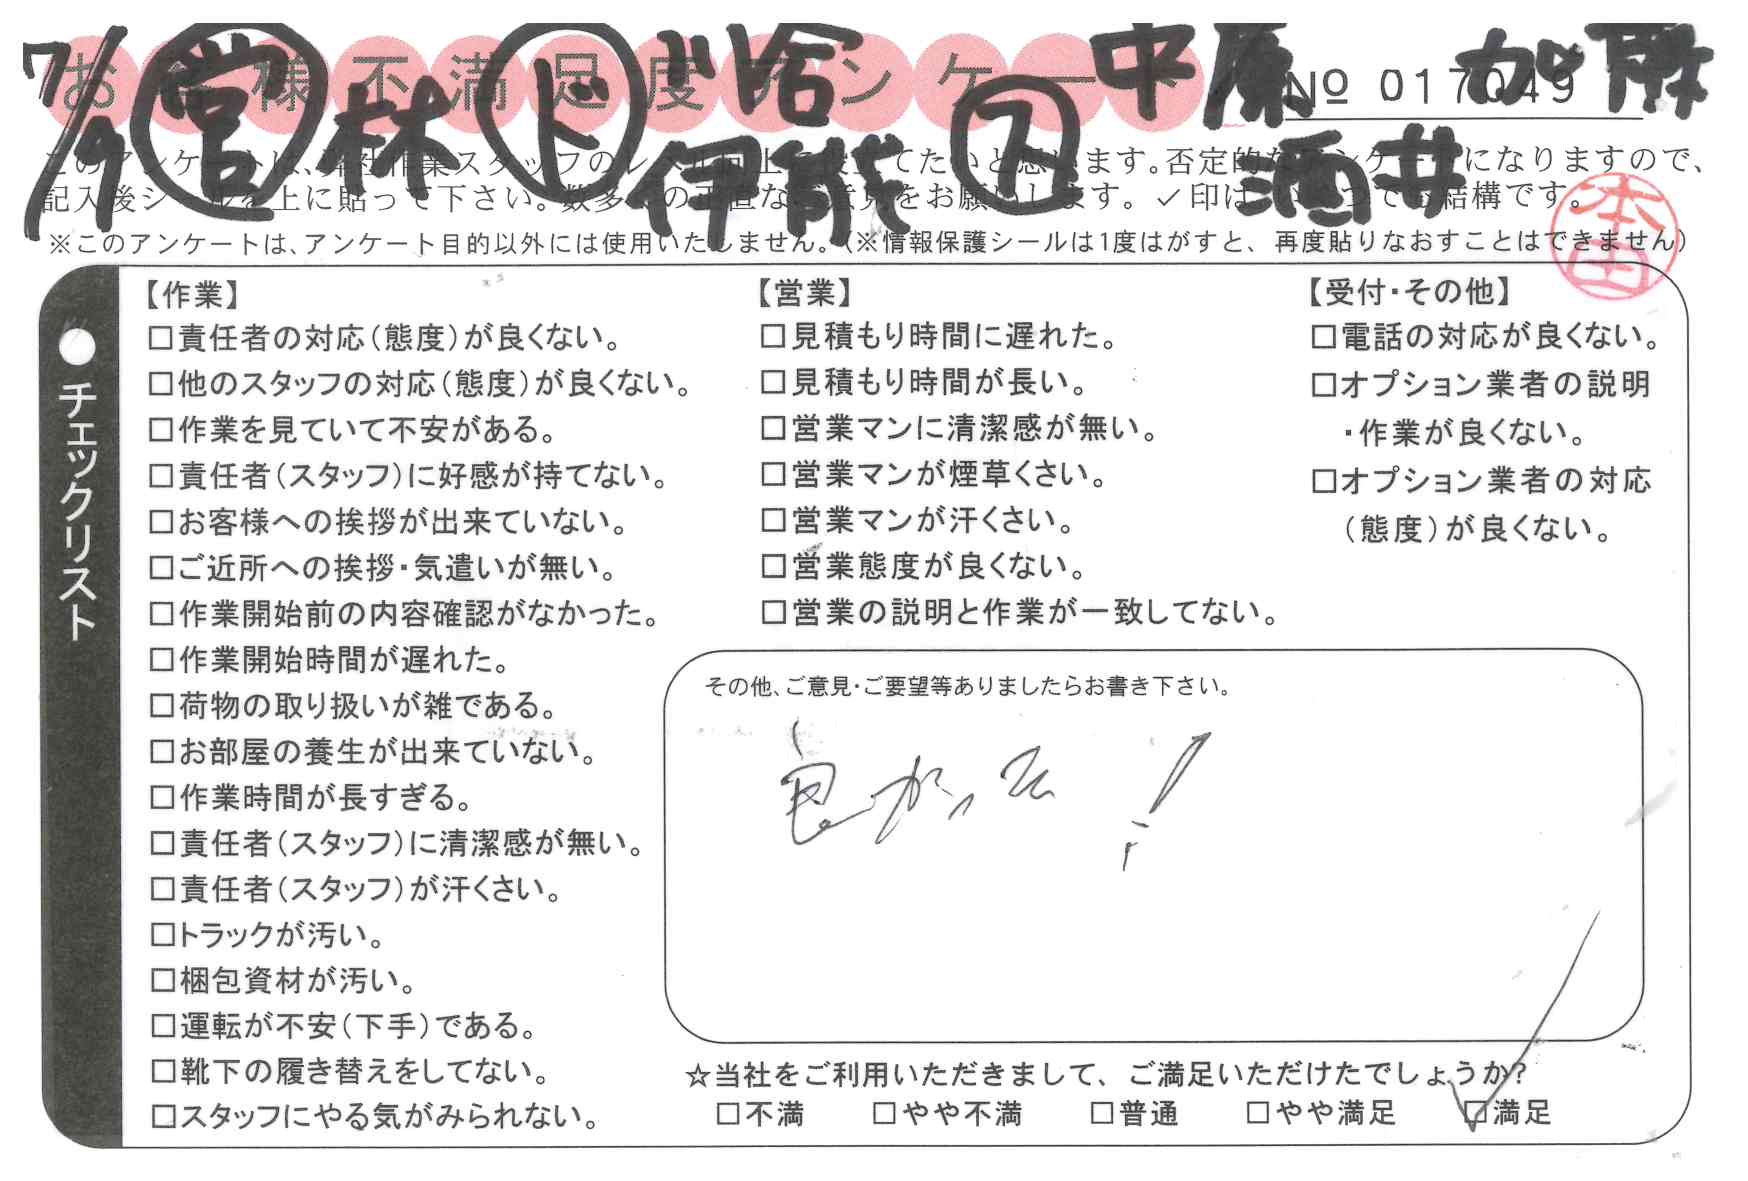 7/9 営 林 ド 伊能 ス 中原 酒井 加藤
お客様不満足度アンケート
№ 017049
このアンケートは、弊社作業スタッフのレベル向上に役立てたいと思います。否定的なアンケートになりますので、
記入後シールを上に貼って下さい。数多くの正直なご意見をお願いします。✓印はいくつでも結構です。
※このアンケートは、アンケート目的以外には使用いたしません。（※情報保護シールは1度はがすと、再度貼りなおすことはできません）
本田
●チェックリスト
【作業】
□責任者の対応（態度）が良くない。
□他のスタッフの対応（態度）が良くない。
□作業を見ていて不安がある。
□責任者（スタッフ）に好感が持てない。
□お客様への挨拶が出来ていない。
□ご近所への挨拶・気遣いが無い。
□作業開始前の内容確認がなかった。
□作業開始時間が遅れた。
□荷物の取り扱いが雑である。
□お部屋の養生が出来ていない。
□作業時間が長すぎる。
□責任者（スタッフ）に清潔感が無い。
□責任者（スタッフ）が汗くさい。
□トラックが汚い。
□梱包資材が汚い。
□運転が不安（下手）である。
□靴下の履き替えをしてない。
□スタッフにやる気がみられない。
【営業】
□見積もり時間に遅れた。
□見積もり時間が長い。
□営業マンに清潔感が無い。
□営業マンが煙草くさい。
□営業マンが汗くさい。
□営業態度が良くない。
□営業の説明と作業が一致してない。
【受付・その他】
□電話の対応が良くない。
□オプション業者の説明
・作業が良くない。
□オプション業者の対応
（態度）が良くない。
その他、ご意見・ご要望等ありましたらお書き下さい。
良かった！
☆当社をご利用いただきまして、ご満足いただけたでしょうか?
□不満 □やや不満 □普通 □やや満足 ☑満足